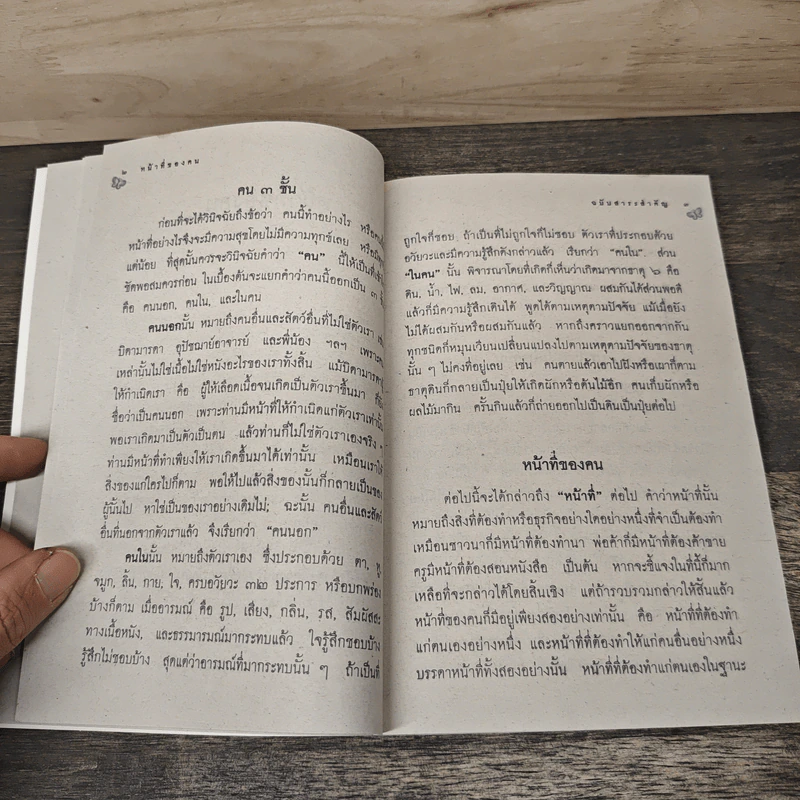 หน้าที่ของคน
คน ๓ ชั้น
ก่อนที่จะได้วินิจฉัยถึงข้อว่า คนนี้ทำอย่างไร หรือ
หน้าที่อย่างไรจึงจะมีความสุขโดยไม่มีความทุกข์เลย หรือ
แต่น้อย ที่สุดนั้นควรจะวินิจฉัยคำว่า “คน” นี้ให้เป็นที่
ชัดพอสมควรก่อน ในเบื้องต้นจะแยกคำว่าคนนี้ออกเป็น ๓
คือ คนนอก, คนใน, และในคน
คนนอกนั้น หมายถึงคนอื่นและสัตว์อื่นที่ไม่ใช่ตัวเรา
บิดามารดา อุปัชฌาย์อาจารย์ และพี่น้อง ฯลฯ เพราะ
เหล่านั้นไม่ใช่เนื้อไม่ใช่หนังอะไรของเราทั้งสิ้น แม้บิดามารดา
ให้กำเนิดเรา คือ ผู้ให้เลือดเนื้อจนเกิดเป็นตัวเราขึ้นมา
ชื่อว่าเป็นคนนอก เพราะท่านมีหน้าที่ให้กำเนิดแก่ตัวเราเท่านั้น
พอเราเกิดมาเป็นตัวเป็นตน แล้วท่านก็ไม่ใช่ตัวเราเองจริง ๆ
ท่านมีหน้าที่ทำเพียงให้เราเกิดขึ้นมาได้เท่านั้น เหมือนเราให้
สิ่งของแก่ใครไปก็ตาม พอให้ไปแล้วสิ่งของนั้นก็กลายเป็นของ
ผู้นั้นไป หาใช่เป็นของเราอย่างเดิมไม่; ฉะนั้น คนอื่นและสัตว์
อื่นที่นอกจากตัวเราแล้ว จึงเรียกว่า “คนนอก”
คนในนั้น หมายถึงตัวเราเอง ซึ่งประกอบด้วย ตา, หู,
จมูก, ลิ้น, กาย, ใจ, ครบอวัยวะ ๓๒ ประการ หรือบกพร่อง
บ้างก็ตาม เมื่ออารมณ์ คือ รูป, เสียง, กลิ่น, รส, สัมผัสสะ
ทางเนื้อหนัง, และธรรมารมณ์มากระทบแล้ว ใจรู้สึกชอบบ้าง
รู้สึกไม่ชอบบ้าง สุดแต่ว่าอารมณ์ที่มากระทบนั้น ๆ ถ้าเป็นที่
ฉบับสาระสำคัญ
ถูกใจก็ชอบ ถ้าเป็นที่ไม่ถูกใจก็ไม่ชอบ ตัวเราที่ประกอบด้วย
อวัยวะและมีความรู้สึกดังกล่าวแล้ว เรียกว่า “คนใน” ส่วน
“ในคน” นั้น พิจารณาโดยที่เกิดก็เห็นว่าเกิดมาจากธาตุ ๖ คือ
ดิน, น้ำ, ไฟ, ลม, อากาศ, และวิญญาณ ผสมกันได้ส่วนพอดี
แล้วก็มีความรู้สึกเดินได้ พูดได้ตามเหตุตามปัจจัย แม้เมื่อยัง
ไม่ได้ผสมกันหรือผสมกันแล้ว หากถึงคราวแยกออกจากกัน
ทุกชนิดก็หมุนเวียนเปลี่ยนแปลงไปตามเหตุตามปัจจัยของธาตุ
นั้น ๆ ไม่คงที่อยู่เลย เช่น คนตายแล้วเอาไปฝังหรือเผาก็ตาม
ธาตุดินก็กลายเป็นปุ๋ยให้เกิดผักหรือต้นไม้อีก คนเก็บผักหรือ
ผลไม้มากิน ครั้นกินแล้วก็ถ่ายออกไปเป็นดินเป็นปุ๋ยต่อไป
หน้าที่ของคน
ต่อไปนี้จะได้กล่าวถึง “หน้าที่” ต่อไป คำว่าหน้าที่นั้น
หมายถึงสิ่งที่ต้องทำหรือธุรกิจอย่างใดอย่างหนึ่งที่จำเป็นต้องทำ
เหมือนชาวนาก็มีหน้าที่ต้องทำนา พ่อค้าก็มีหน้าที่ต้องค้าขาย
ครูมีหน้าที่ต้องสอนหนังสือ เป็นต้น หากจะชี้แจงในที่นี้ก็มาก
เหลือที่จะกล่าวได้โดยสิ้นเชิง แต่ถ้ารวบรวมกล่าวให้สิ้นแล้ว
หน้าที่ของคนก็มีอยู่เพียงสองอย่างเท่านั้น คือ หน้าที่ที่ต้องทำ
แก่ตนเองอย่างหนึ่ง และหน้าที่ที่ต้องทำให้แก่คนอื่นอย่างหนึ่ง
บรรดาหน้าที่ทั้งสองอย่างนั้น หน้าที่ที่ต้องทำแก่ตนเองในฐานะ